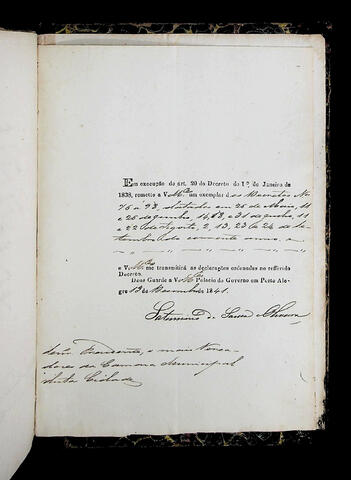 Em execução do art. 20 do Decreto do 1º de Janeiro de
1838, remetto a V Mces um exemplar dos Decretos Nos
76 a 93, datados em 26 de Maio, 11
e 25 de Junho, 14, e 31 de Junho, 11
e 22 de Agosto, 2, 13, 23 de Se-
tembro do corrente anno, e
e V Mces me transmittirá as declarações ordenadas no referido
Decreto.
Deos Guarde a V Mces Palacio do Governo em Porto Ale-
gre 13 de Dezembro de 1841.
Saturnino de Souza e Oliveira
Senr Presidente, e mais Verea-
dores da Camara Municipal
desta Cidade